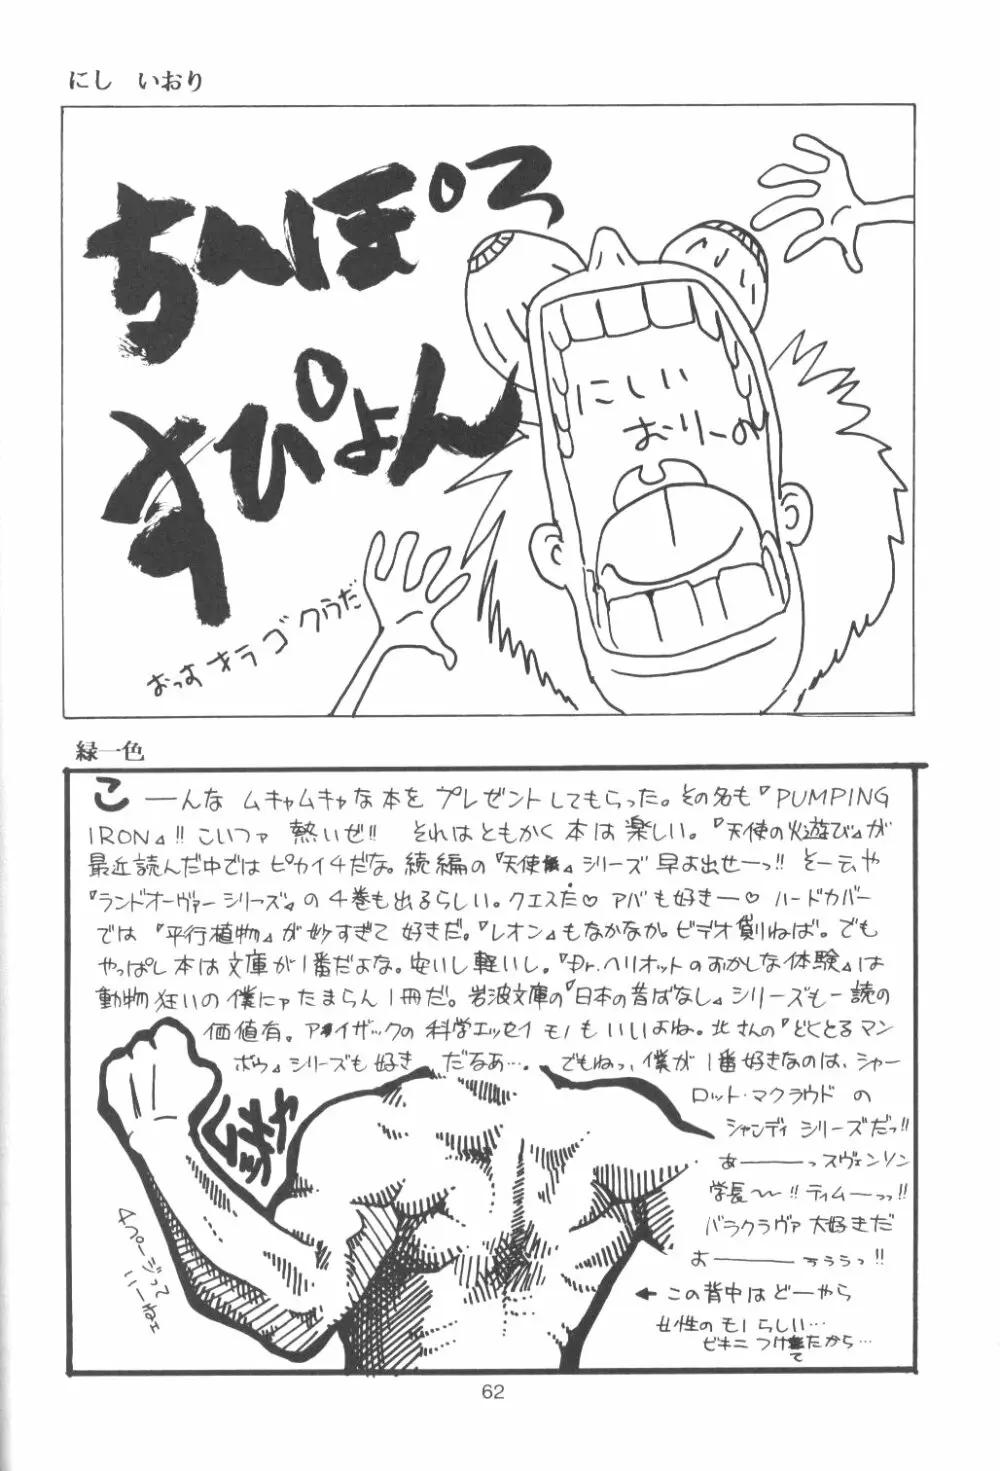 にし　いおり
ちんぽろ
すぴょん
にしい
おりーの
おっす オラ ゴクウだ
緑一色
こーんな ムキャムキャな本を プレゼントしてもらった。その名も『PUMPING
IRON』!! こいつァ 熱いぜ!! それはともかく 本は楽しい。『天使の火遊び』が
最近読んだ中では ピカイチだな。続編の『天使』シリーズ 早よ出せーっ!! そーいや
『ランドオーヴァーシリーズ』の4巻も出るらしい。クエスだ♡ アバも好きー♡ ハードカバー
では『平行植物』が妙すぎて 好きだ。『レオン』もなかなか。ビデオ借りねば。でも
やっぱし 本は文庫が1番だよな。安いし軽いし。『Dr.ヘリオットのおかしな体験』は
動物狂いの僕にァたまらん1冊だ。岩波文庫の『日本の昔ばなし』シリーズも一読の
価値有。アイザックの科学エッセイモノもいいよね。北さんの『どくとるマン
ボウ』シリーズも好き だなあ…。でもねっ、僕が1番好きなのは、シャー
ロット・マクラウド の
シャンディ シリーズだっ!!
あ———っスヴェンソン
学長〜〜!! ティムーっっ!!
バラクラヴァ 大好きだ
お———ぅぅぅっ!!
← この背中はどーやら
女性のモノらしい…
ビキニつけてたから…
4ページって
いーねェ
62